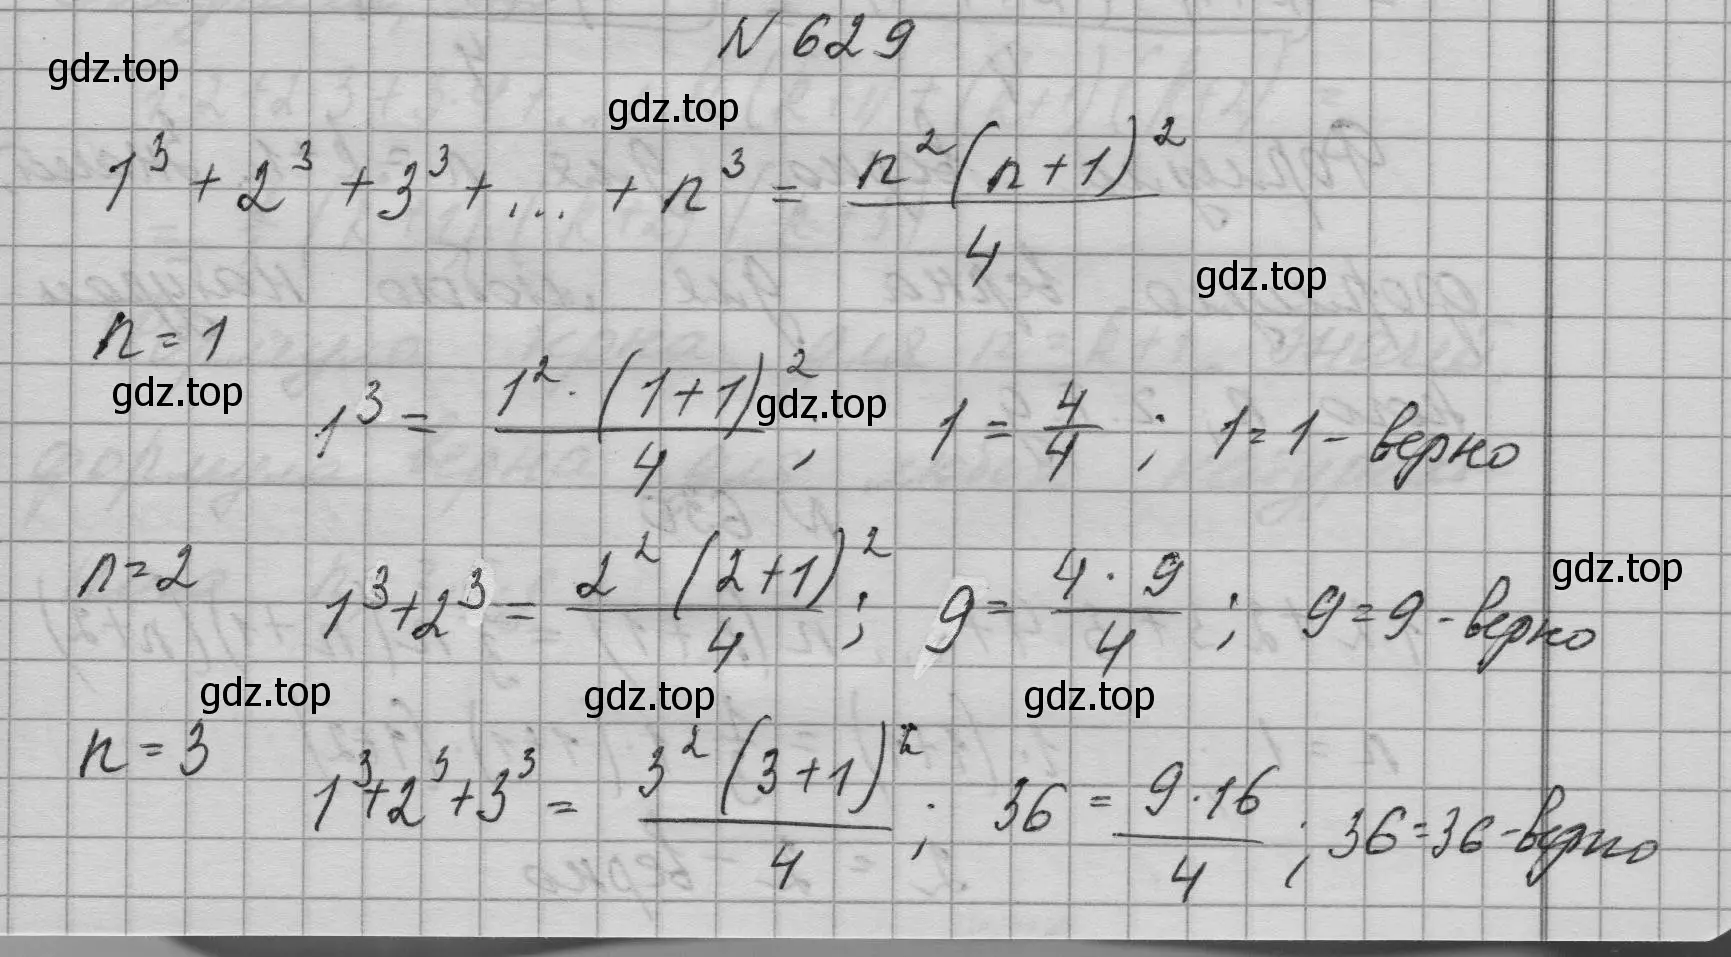 N 629
gdz.top
gdz.top
1³ + 2³ + 3³ + ... + n³ = n²(n+1)²/4
gdz.top
n = 1
gdz.top
1³ = 1² · (1+1)²/4 ; 1 = 4/4 ; 1 = 1 - верно
gdz.top
n = 2 1³+2³ = 2²(2+1)²/4 ; 9 = 4 · 9/4 ; 9 = 9 - верно
gdz.top
gdz.top gdz.top gdz.top
n = 3 1³+2³+3³ = 3²(3+1)²/4 ; 36 = 9 · 16/4 ; 36 = 36 - верно